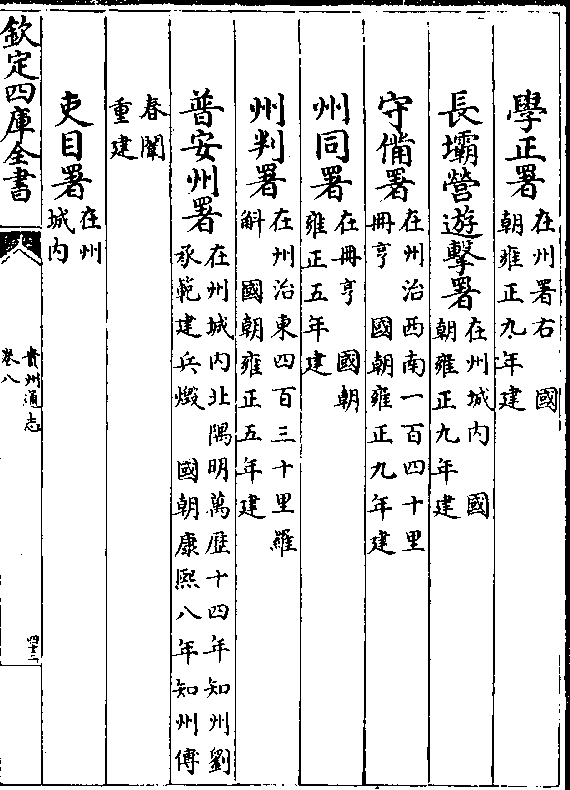 學正署在州署右　國
朝雍正九年建
長壩營遊擊署在州城内　國
朝雍正九年建
守備署在州治西南一百四十里
冊亨　國朝雍正九年建
州同署在冊亨　國朝
雍正五年建
州判署在州治東四百三十里羅
斛　國朝雍正五年建
普安州署在州城内北隅明萬歷十四年知州劉
承範建兵燬　國朝康熙八年知州傅
春闈
重建
吏目署在州
城内
欽定四庫全書
貴州通志
卷八
四十三